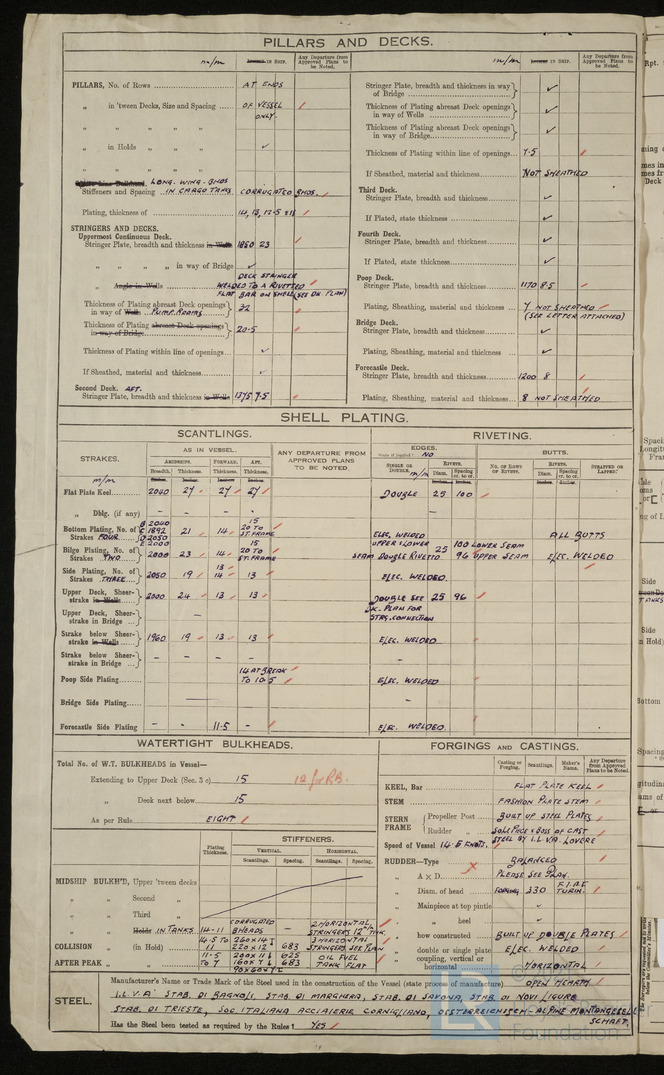 PILLARS AND DECKS.
m/m
Inches IN SHIP.
Any Departure from Approved Plans to be Noted.
PILLARS, No. of Rows
AT ENDS
„ in 'tween Decks, Size and Spacing
OF VESSEL
ONLY.
„ „ „ „
„ in Holds „ „ ✓
„ „ „ „
LONG. WING BHDS
Stiffeners and Spacing IN CARGO TANKS CORRUGATED BHDS.
Plating, thickness of 14, 13, 12·5 & 11
STRINGERS AND DECKS.
Uppermost Continuous Deck.
Stringer Plate, breadth and thickness in Wells 1850 23
„ „ „ „ in way of Bridge ✓
DECK STRINGER
„ Angle in Wells WELDED TO A RIVETTED
FLAT BAR ON SHELL (SEE DK. PLAN)
Thickness of Plating abreast Deck openings
in way of Wells PUMP ROOMS 32
Thickness of Plating abreast Deck openings
in way of Bridge 20·5
Thickness of Plating within line of openings ✓
If Sheathed, material and thickness ✓
Second Deck. AFT.
Stringer Plate, breadth and thickness in Wells 1375 7·5
m/m
Inches IN SHIP.
Any Departure from Approved Plans to be Noted.
Stringer Plate, breadth and thickness in way
of Bridge ✓
Thickness of Plating abreast Deck openings
in way of Wells ✓
Thickness of Plating abreast Deck openings
in way of Bridge ✓
Thickness of Plating within line of openings 7·5
If Sheathed, material and thickness NOT SHEATHED
Third Deck.
Stringer Plate, breadth and thickness ✓
If Plated, state thickness ✓
Fourth Deck.
Stringer Plate, breadth and thickness ✓
If Plated, state thickness ✓
Poop Deck.
Stringer Plate, breadth and thickness 1170 8·5
Plating, Sheathing, material and thickness 7 NOT SHEATHED
(SEE LETTER ATTACHED)
Bridge Deck.
Stringer Plate, breadth and thickness ✓
Plating, Sheathing, material and thickness ✓
Forecastle Deck.
Stringer Plate, breadth and thickness 1200 8
Plating, Sheathing, material and thickness 8 NOT SHEATHED
SHELL PLATING.
SCANTLINGS.
RIVETING.
STRAKES.
AS IN VESSEL.
AMIDSHIPS. FORWARD. AFT.
Breadth. Thickness. Thickness. Thickness.
ANY DEPARTURE FROM APPROVED PLANS TO BE NOTED.
EDGES.
State if joggled? NO
BUTTS.
SINGLE OR DOUBLE.
RIVETS.
Diam. Spacing cr. to cr.
No. OF ROWS OF RIVETS.
RIVETS.
Diam. Spacing cr. to cr.
STRAPPED OR LAPPED?
m/m
Flat Plate Keel 2040 27 27 27 DOUBLE 25 100
„ Dblg. (if any) — — — —
Bottom Plating, No. of Strakes FOUR
B 2040
C 1892
D 2050
E 2000
21 14 15 20 TO ST. FRAME ELEC. WELDED ALL BUTTS
Bilge Plating, No. of Strakes TWO 2000 23 14 15 20 TO ST. FRAME
UPPER & LOWER SEAM DOUBLE RIVETTED 25 100 LOWER SEAM
96 UPPER SEAM ELEC. WELDED
Side Plating, No. of Strakes THREE 2050 19 13 14 13 ELEC. WELDED.
Upper Deck, Sheer-strake in Wells 2000 24 13 13 DOUBLE SEE 25 96
DK. PLAN FOR
STRG. CONNECTION
Upper Deck, Sheer-strake in Bridge —
Strake below Sheer-strake in Wells 1960 19 13 13 ELEC. WELDED
Strake below Sheer-strake in Bridge — — — — —
Poop Side Plating 14 AT BREAK TO 10·5 ELEC. WELDED
Bridge Side Plating — — — —
Forecastle Side Plating — - 11·5 - ELEC. WELDED.
WATERTIGHT BULKHEADS.
Total No. of W.T. BULKHEADS in Vessel—
Extending to Upper Deck (Sec. 3 c) 15
12 for R.B.
„ Deck next below 15
As per Rule EIGHT
Plating Thickness.
STIFFENERS.
VERTICAL. HORIZONTAL.
Scantlings. Spacing. Scantlings. Spacing.
MIDSHIP BULKH'D, Upper 'tween decks
„ „ Second „
„ „ Third „
„ „ Holds IN TANKS 14-11 CORRUGATED BHEADS — 2 HORIZONTAL STRINGERS
COLLISION „ (in Hold) 14·5 TO 11 683 3 HORIZONTAL STRINGERS SEE PLAN
AFTER PEAK „ „ 11·5 TO 7 625 683 OIL FUEL TANK FLAT
FORGINGS AND CASTINGS.
Casting or Forging.
Scantlings.
Maker's Name.
Any Departure from Approved Plans to be Noted.
KEEL, Bar FLAT PLATE KEEL
STEM FASHION PLATE STEM
STERN FRAME
Propeller Post BUILT UP STEEL PLATES
Rudder „ SOLE PIECE & BOSS OF CAST STEEL BY I.L.VA. LOVERE
Speed of Vessel 14·5 KNOTS.
RUDDER—Type BALANCED
„ A × D PLEASE SEE PLAN.
„ Diam. of head FORGING 330 F.I.A.T. TURIN.
„ Mainpiece at top pintle ✓
„ „ heel ✓
„ how constructed BUILT UP DOUBLE PLATES
„ double or single plate ELEC. WELDED
„ coupling, vertical or horizontal HORIZONTAL
STEEL.
Manufacturer's Name or Trade Mark of the Steel used in the construction of the Vessel (state process of manufacture) OPEN HEARTH
I.L.V.A. STAB. DI BAGNOLI, STAB. DI MARGHERA, STAB. DI SAVONA, STAB. DI NOVI LIGURE
STAB. DI TRIESTE, SOC. ITALIANA ACCIAIERIE CORNIGLIANO, OESTERREICHISCH-ALPINE MONTANGESELL
SCHAFT.
Has the Steel been tested as required by the Rules? YES
LR
Foundation